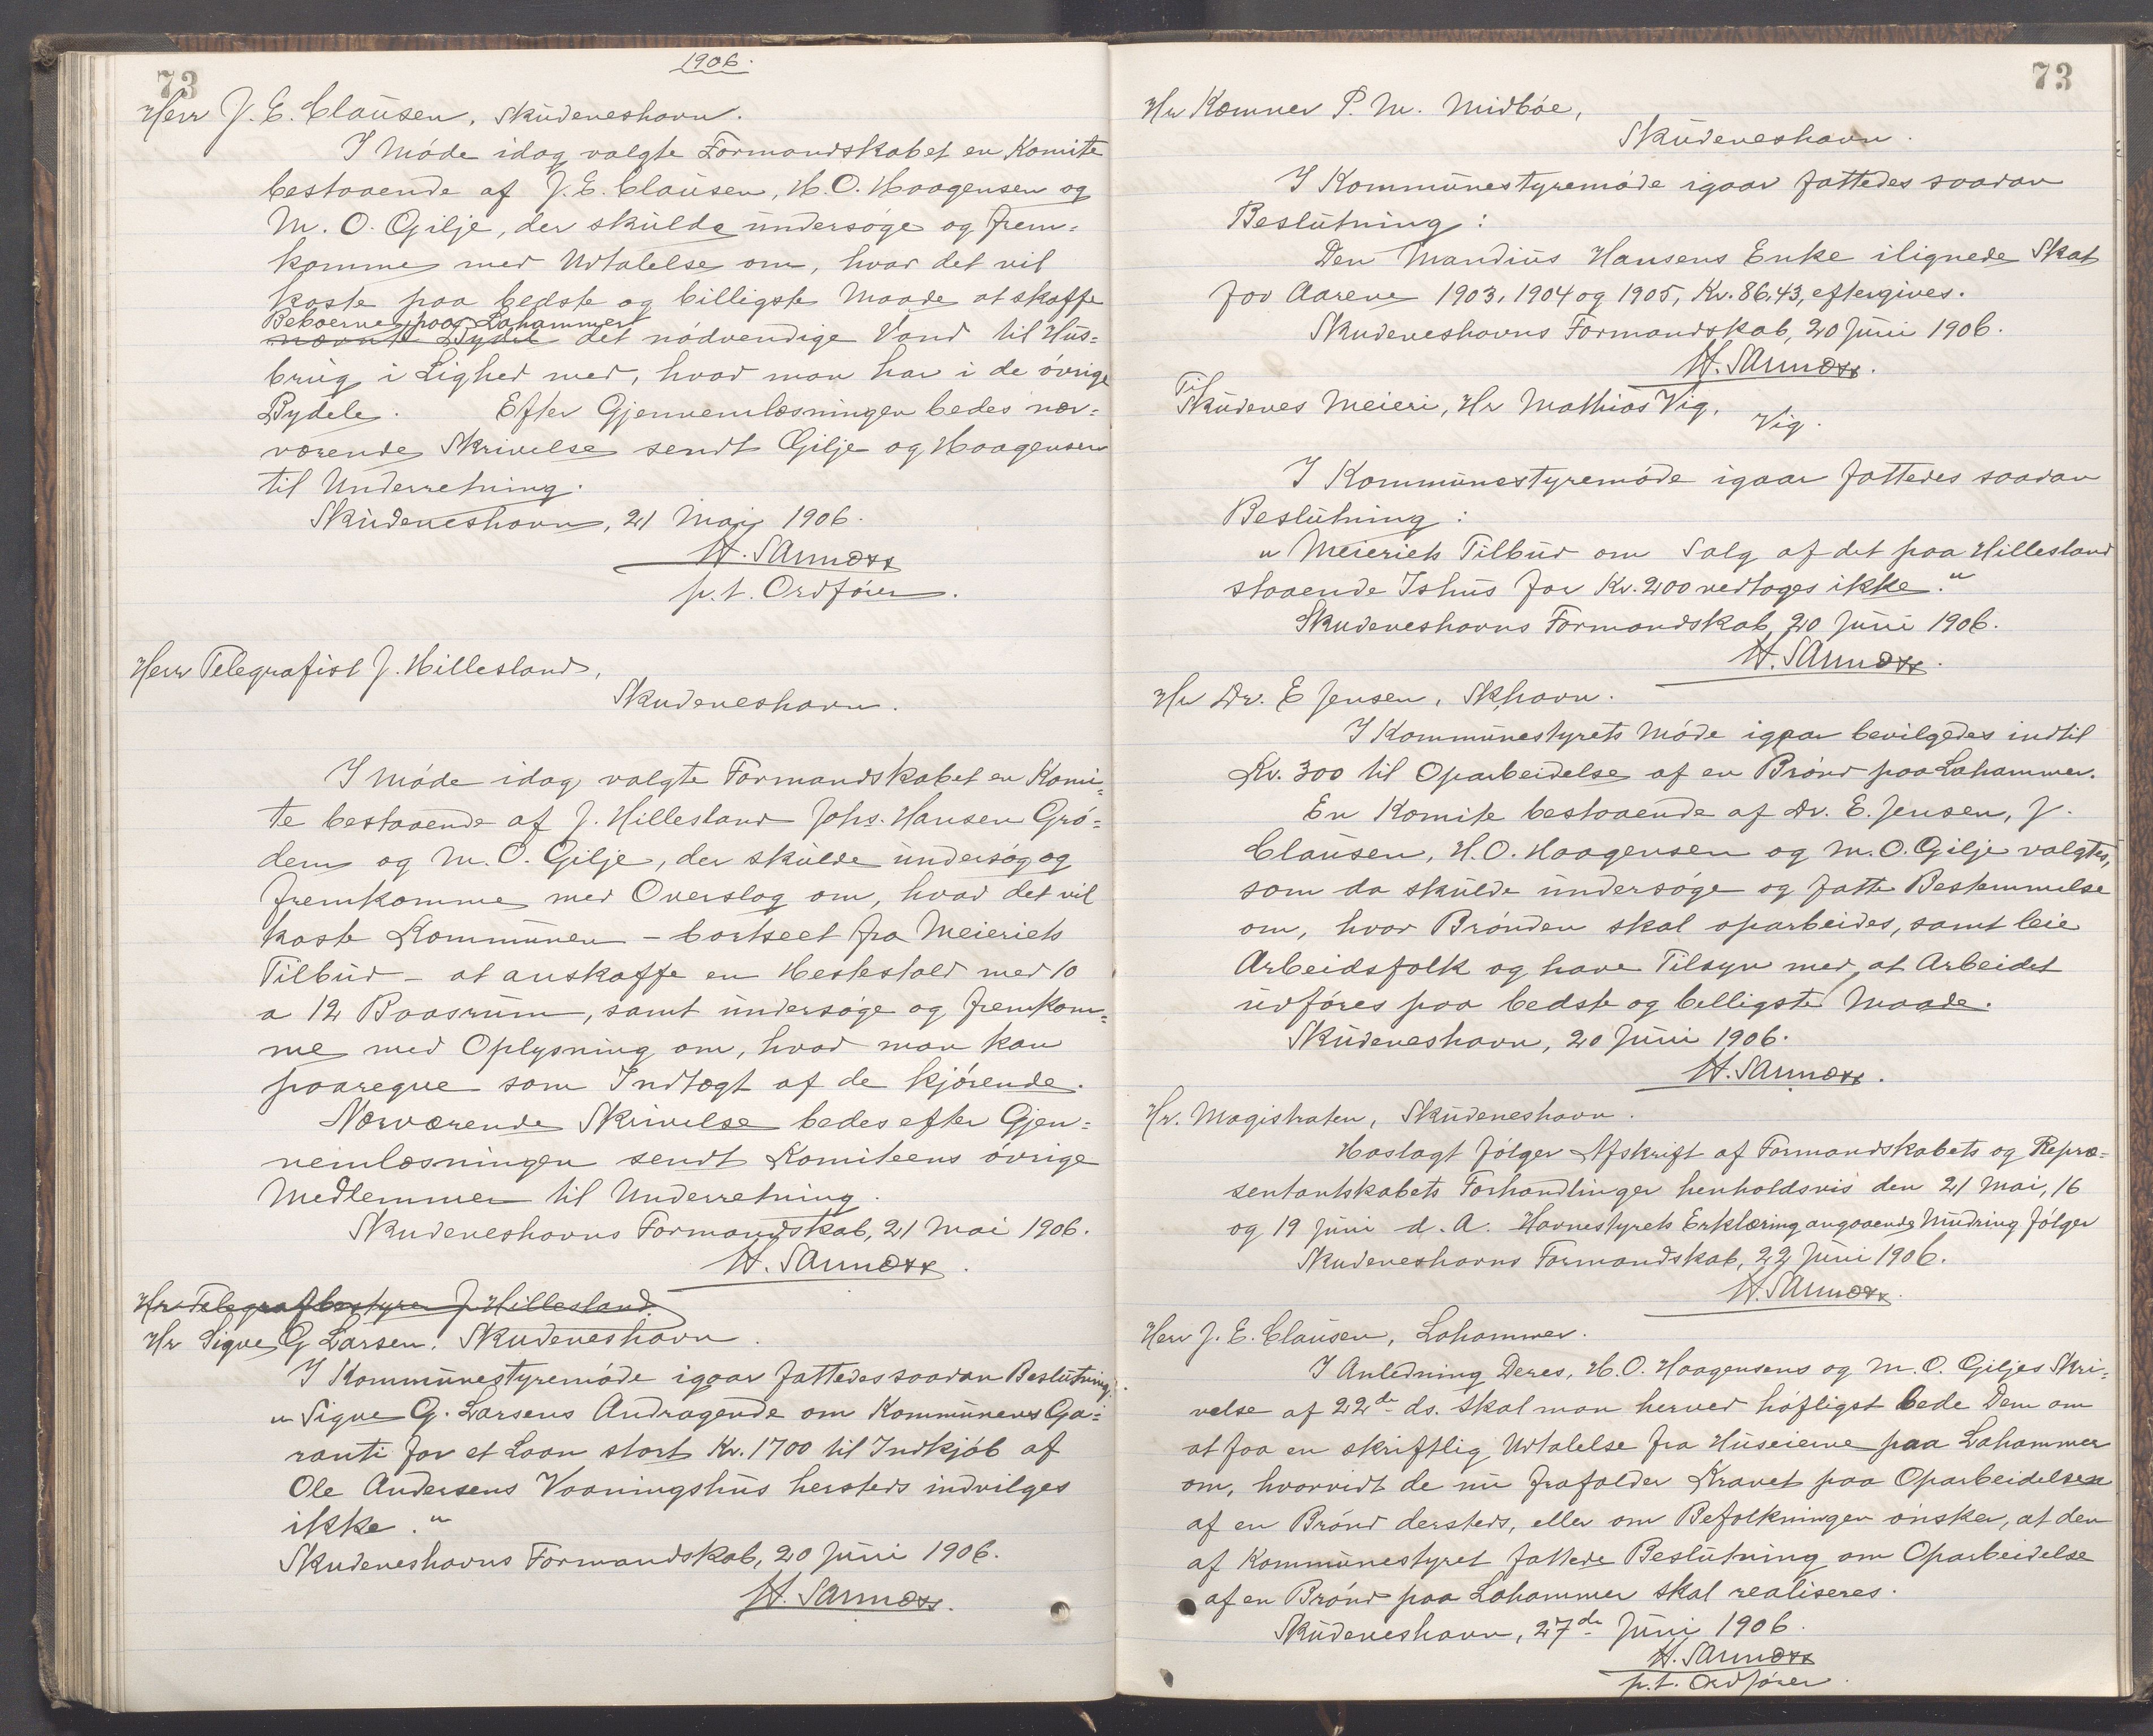 1906.
73
Herr J. E. Clausen, Skudeneshavn.
I Møde idag valgte Formandskabet en Komite
bestaaende af J. E. Clausen, H. O. Haagensen og
M. O. Gilje, der skulde undersøge og frem=
komme med Udtalelse om, hvad det vil
koste paa bedste og billigste Maade at skaffe
Beboerne paa Lahammer
nævnte Bydel det nødvendige Vand til Hus=
brug i Lighed med, hvad man har i de øvrige
Bydele. Efter Gjennemlæsningen bedes nær=
værende Skrivelse sendt Gilje og Haagensen
til Underretning.
Skudeneshavn, 21 Mai 1906.
p.t. Ordfører.
Herr Telegrafist J. Hillesland,
Skudeneshavn.
I Møde idag valgte Formandskabet en Komi=
te bestaaende af J. Hillesland Johs. Hansen Grø=
dem og M. O. Gilje, der skulde undersøg og
fremkomme med Overslag om, hvad det vil
koste Kommunen – bortseet fra Meieriets
Tilbud – at anskaffe en Hestestald med 10
a 12 Baasrum, samt undersøge og fremkom=
me med Oplysning om, hvad man kan
paaregne som Indtægt af de kjørende.
Nærværende Skrivelse bedes efter Gjen=
nemlæsningen sendt Komiteens øvrige
Medlemmer til Underretning.
Skudeneshavns Formandskab, 21 Mai 1906.
Hr Telegrafbestyrer J Hillesland.
Hr Sigve G Larsen. Skudeneshavn.
I Kommunestyremøde igaar fattedes saadan Beslutning:
"Sigve G. Larsens Andragende om Kommunens Ga=
ranti for et Laan stort Kr. 1700 til Indkjøb af
Ole Andersens Vaaningshus hersteds indvilges
ikke."
Skudeneshavns Formandskab, 20 Juni 1906.
73
Hr Kæmner P. M. Midbøe,
Skudeneshavn.
I Kommunestyremøde igaar fattedes saadan
Beslutning:
Den Mandius Hansens Enke ilignede Skat
for Aarene 1903, 1904 og 1905, Kr. 86,43, eftergives.
Skudeneshavns Formandskab, 20 Juni 1906.
Til
Skudenes Meieri, Hr Mathias Vig,
Vig.
I Kommunestyremøde igaar fattedes saadan
Beslutning:
"Meieriets Tilbud om Salg af det paa Hillesland
staaende Ishus for Kr. 200 vedtages ikke."
Skudeneshavns Formandskab, 20 Juni 1906.
Hr Dr. E Jensen, Skhavn.
I Kommunestyrets Møde igaar bevilgedes indtil
Kr. 300 til Oparbeidelse af en Brønd paa Lahammer.
En Komite bestaaende af Dr. E. Jensen, J.
Clausen, H. O. Haagensen og M. O. Gilje valgtes,
som da skulde undersøge og fatte Bestemmelse
om, hvor Brønden skal oparbeides, samt leie
Arbeidsfolk og have Tilsyn med, at Arbeidet
udføres paa bedste og billigste Maade.
Skudeneshavn, 20 Juni 1906.
Hr. Magistraten, Skudeneshavn.
Hoslagt følger Afskrift af Formandskabets og Repræ=
sentantskabets Forhandlinger henholdsvis den 21 Mai, 16
og 19 Juni d. A. Havnestyrets Erklæring angaaende Mudring følger
Skudeneshavns Formandskab, 22 Juni 1906.
Herr J. E. Clausen, Lahammer.
I Anledning Deres, H. O. Haagensens og M. O. Giljes Skri=
velse af 22de ds. skal man herved høfligst bede Dem om
at faa en skriftlig Udtalelse fra Huseierne paa Lahammer
om, hvorvidt de nu frafalder Kravet paa Oparbeidelsen
af en Brønd dersteds, eller om Befolkningen ønsker, at den
af Kommunestyret fattede Beslutning om Oparbeidelse
af en Brønd paa Lahammer skal realiseres.
Skudeneshavn, 27de Juni 1906.
p.t. Ordfører.